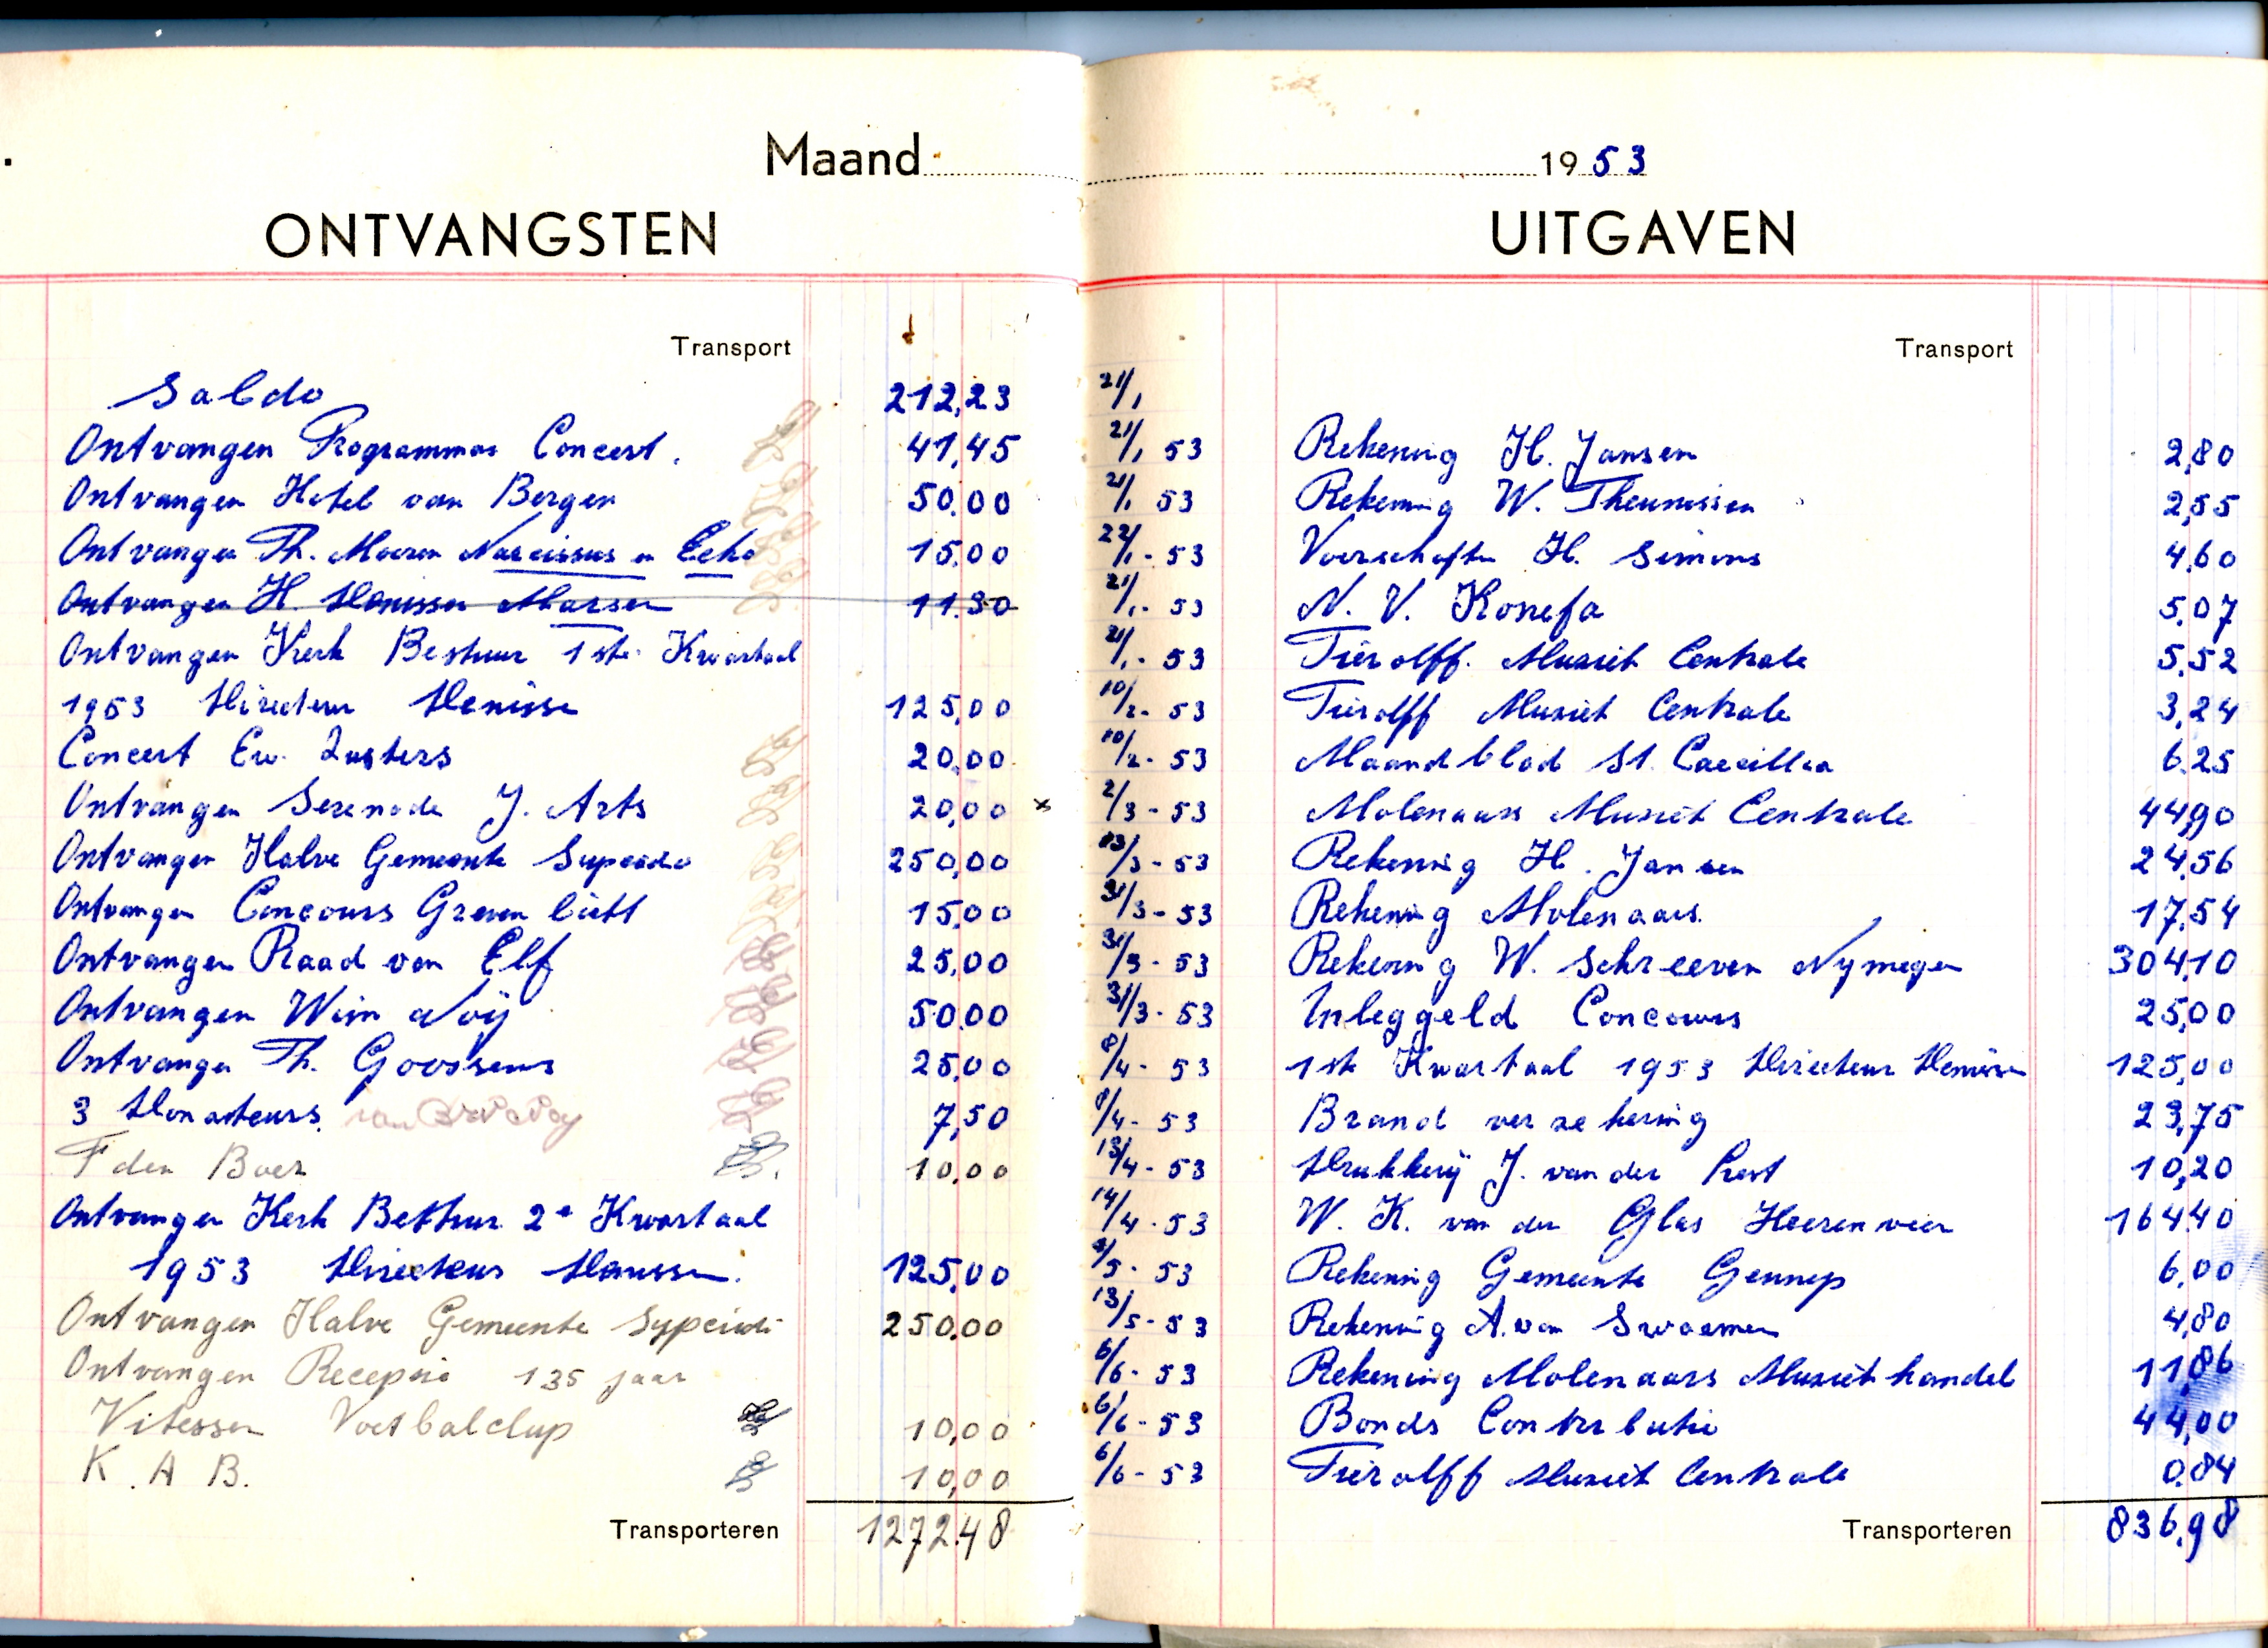 Maand
ONTVANGSTEN
Transport
Saldo 212,23
Ontvangen Programmas Concert. 41,45
Ontvangen Hotel van Bergen 50.00
Ontvangen Th. Narcissus en Echo 15.00
Ontvangen H. 11.30
Ontvangen Kerk Bestuur 1ste Kwartaal
1953 Directeur 125,00
Concert Ew. 20,00
Ontvangen Serenade J. Arts 20,00 x
Ontvangen Halve Gemeente 250,00
Ontvangen Concours 15,00
Ontvangen Raad van Elf 25,00
Ontvangen Wim Noij 50.00
Ontvangen Th. Goossens 25,00
3 Donateurs. 7,50
F den Boer 10.00
Ontvangen Kerk Bestuur 2e Kwartaal
1953 Directeur 125,00
Ontvangen Halve Gemeente 250.00
Ontvangen Receptie 135 jaar
Vitessen Voetbalclup 10,00
K.A.B. 10,00
Transporteren 1272.48
1953
UITGAVEN
Transport
21/1
21/1 53 Rekening H. Jansen 2,80
21/1 53 Rekening W. Theunissen 2,55
22/1-53 H. Simons 4,60
21/1-53 N.V. Konefa 5,07
21/1-53 Tierolff Musiek Centrale 5,52
10/2-53 Tierolff Musiek Centrale 3,24
10/2-53 Maandblad St. Caecilia 6.25
2/3-53 Molenaars Musiek Centrale 44,90
13/3-53 Rekening H. Jansen 24,56
31/3-53 Rekening Molenaars. 17,54
31/3-53 Rekening W. Schreeven Nymegen 304,10
31/3-53 Inleggeld Concours 25,00
8/4-53 1ste Kwartaal 1953 Directeur 125,00
8/4-53 Brand verzekering 23,75
13/4-53 Drukkerij J. van der 10,20
14/4-53 W. K. van der Glas Heerenveen 164,40
53 Rekening Gemeente Gennep 6,00
13/5-53 Rekening A. van 4,80
6/6-53 Rekening Molenaars Musiekhandel 11,86
6/6-53 Bonds Contributie 44,00
6/6-53 Tierolff Musiek Centrale 0.84
Transporteren 836,98